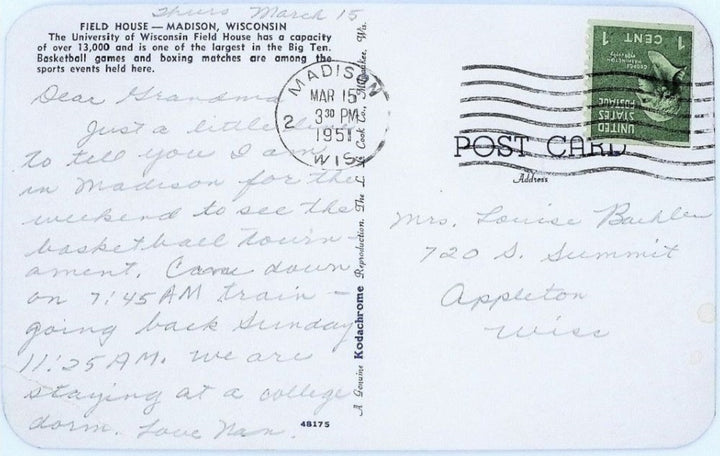 Thurs March 15
FIELD HOUSE — MADISON, WISCONSIN
The University of Wisconsin Field House has a capacity
of over 13,000 and is one of the largest in the Big Ten.
Basketball games and boxing matches are among the
sports events held here.
Dear Grandma
Just a little
to tell you I am
in Madison for the
weekend to see the
basketball tourn-
ament. Came down
on 7:45 AM train -
going back Sunday
11:25 AM. We are
staying at a college
dorm. Love Nan.
48175
A Genuine Kodachrome Reproduction. The L. Cook Co., Milwaukee, Wis.
MADISON
MAR 15
2 3 30 PM
1951
WIS.
1 CENT 1
GEORGE WASHINGTON
UNITED
STATES
POSTAGE
POST CARD
Address
Mrs. Louise Baehler
720 S. Summit
Appleton
Wisc